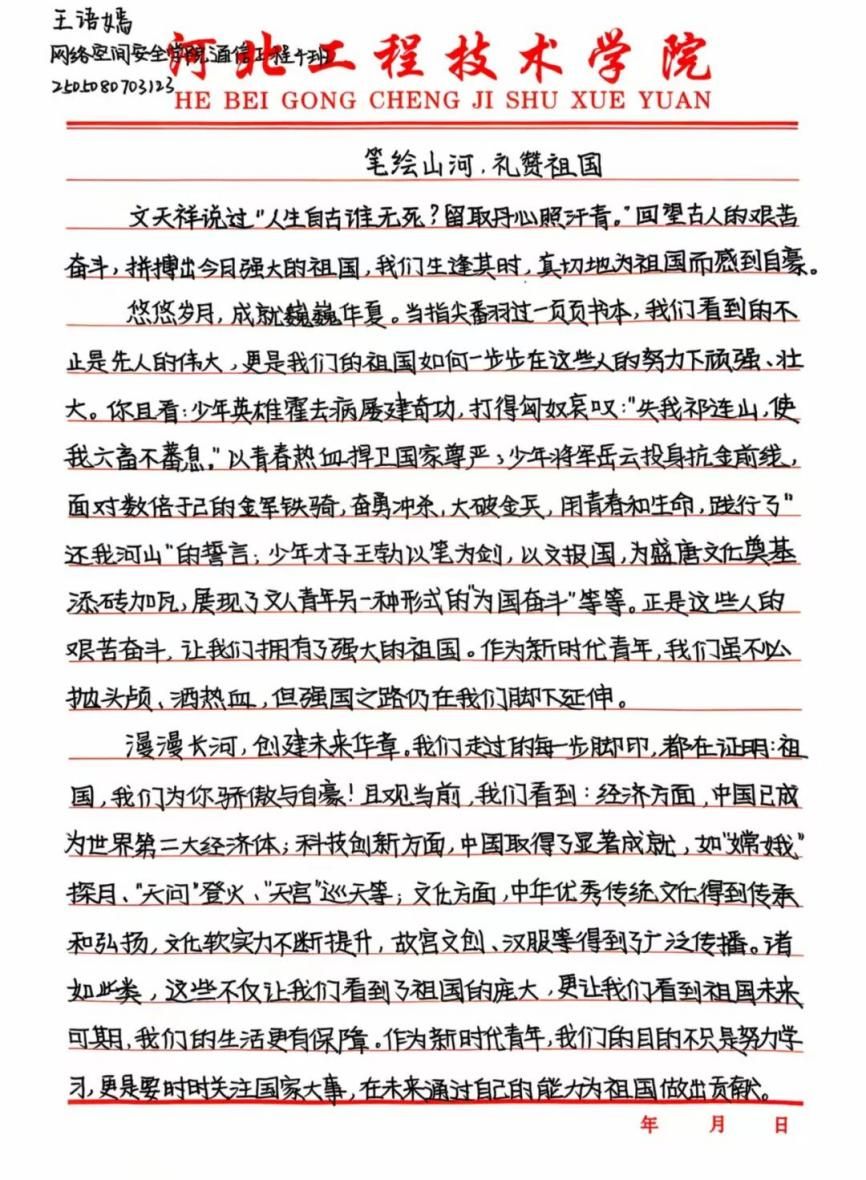 王语嫣
网络空间安全学院通信工程十班
2505080703123
河北工程技术学院
HE BEI GONG CHENG JI SHU XUE YUAN
笔绘山河，礼赞祖国
文天祥说过“人生自古谁无死？留取丹心照汗青。”回望古人的艰苦
奋斗，拼搏出今日强大的祖国，我们生逢其时，真切地为祖国而感到自豪。
悠悠岁月，成就巍巍华夏。当指尖翻过一页页书本，我们看到的不
止是先人的伟大，更是我们的祖国如何一步步在这些人的努力下顽强、壮
大。你且看：少年英雄霍去病屡建奇功，打得匈奴哀叹：“失我祁连山，使
我六畜不蕃息。”以青春热血捍卫国家尊严；少年将军岳云投身抗金前线，
面对数倍于己的金军铁骑，奋勇冲杀，大破金兵，用青春和生命，践行了“
还我河山”的誓言；少年才子王勃以笔为剑，以文报国，为盛唐文化奠基
添砖加瓦，展现了文人青年另一种形式的“为国奋斗”等等。正是这些人的
艰苦奋斗，让我们拥有了强大的祖国。作为新时代青年，我们虽不必
抛头颅、洒热血，但强国之路仍在我们脚下延伸。
漫漫长河，创建未来华章。我们走过的每一步脚印，都在证明：祖
国，我们为你骄傲与自豪！且观当前，我们看到：经济方面，中国已成
为世界第二大经济体；科技创新方面，中国取得了显著成就，如“嫦娥”
探月、“天问”登火、“天宫”巡天等；文化方面，中华优秀传统文化得到传承
和弘扬，文化软实力不断提升，故宫文创、汉服等得到了广泛传播。诸
如此类，这些不仅让我们看到了祖国的庞大，更让我们看到祖国未来
可期，我们的生活更有保障。作为新时代青年，我们的目的不只是努力学
习，更是要时时关注国家大事，在未来通过自己的能力为祖国做出贡献。
年 月 日